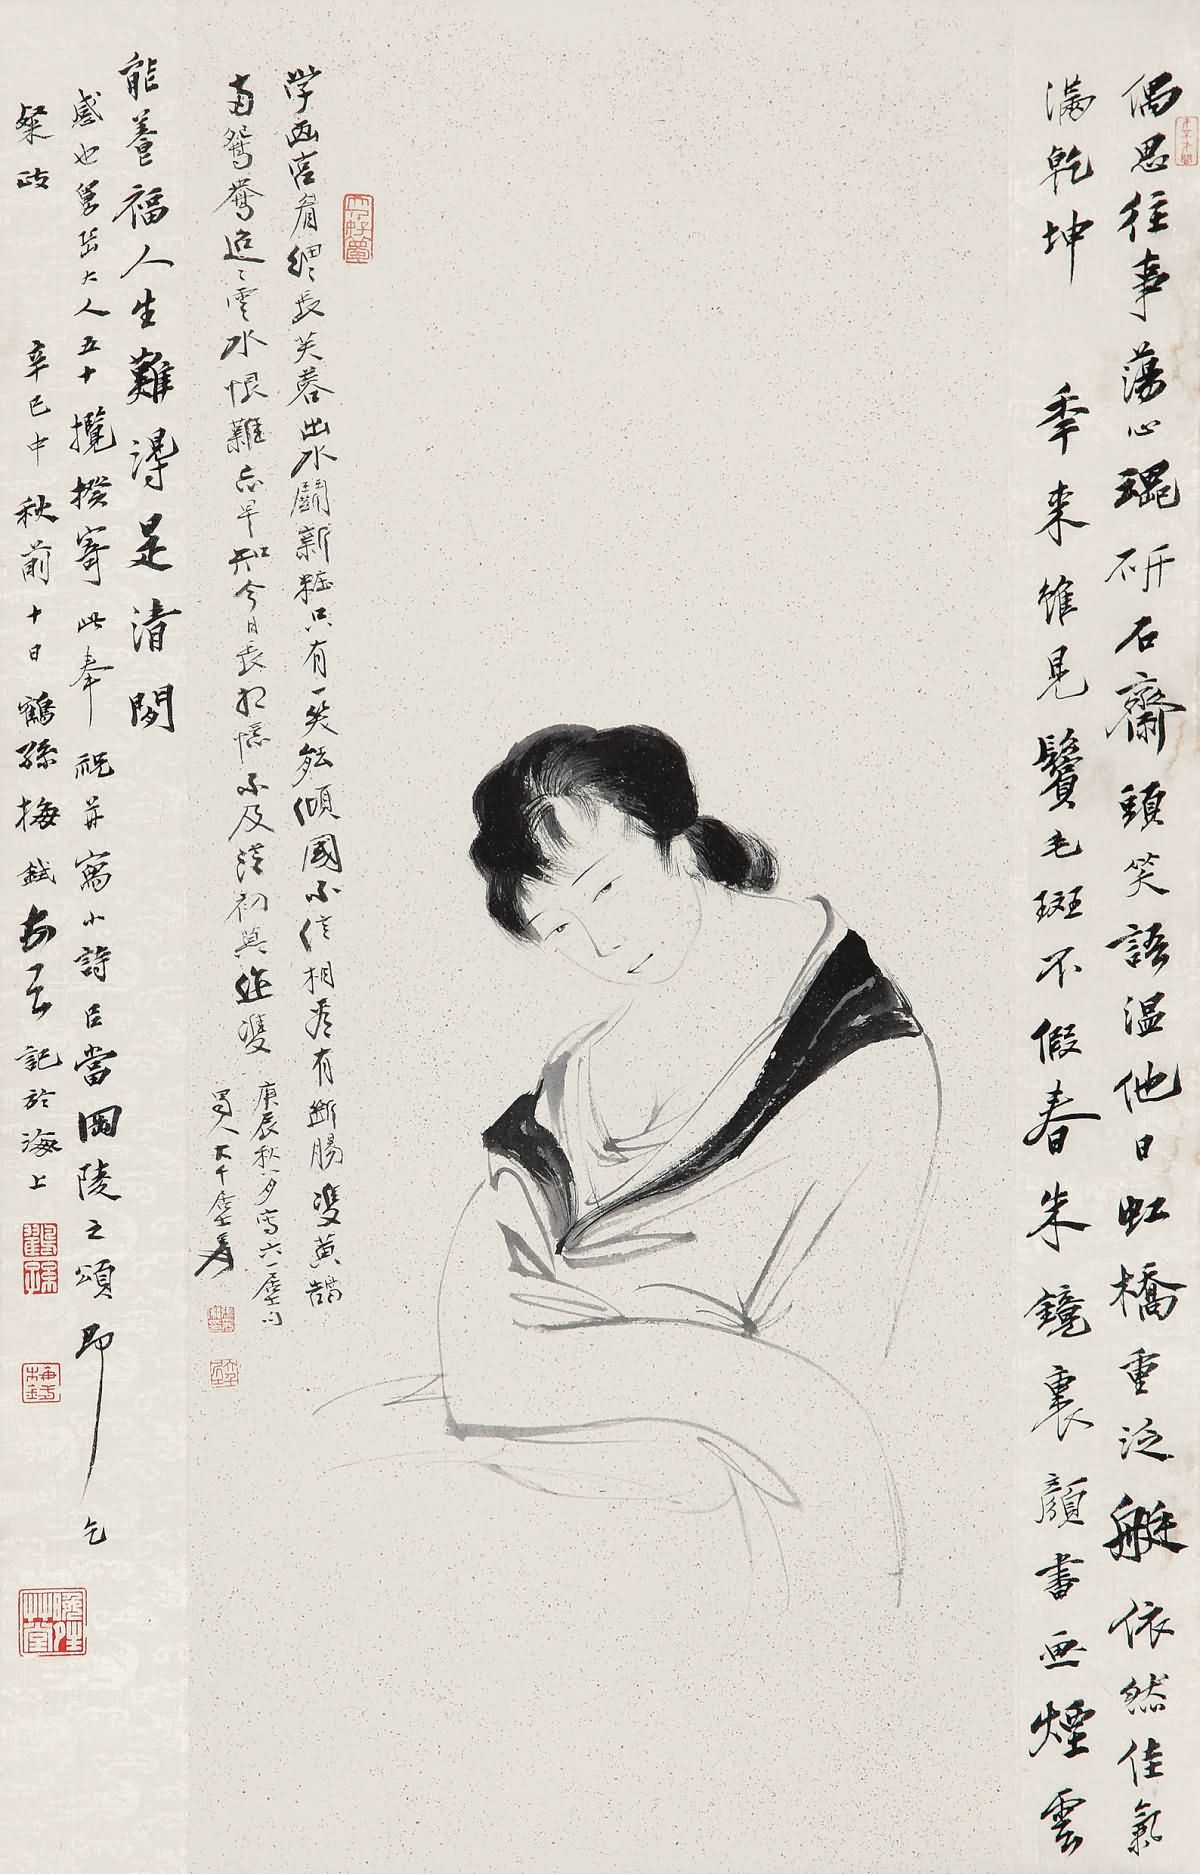 偶思往事蕩心琨研石齋頭笑語温他日虹橋重泛艇依然佳氣
滿乾坤 季来維見鬢毛斑不假春朱鏡裏顏書画煙雲
学画宫眉細細長芙蓉出水鬭新粧只有一笑能傾國不信相看有斷腸雙黃鵠
両鴛鴦迢迢雲水恨難忘早知今日長相憶不及從初莫作雙
庚辰秋夕寫六一堂句
蜀人大千居士爰
能養福人生難得是清閒
感也 大人五十攬揆寄此奉祝并寫小詩昌當岡陵之頌即乞
粲政
辛巳中秋前十日鶴孫梅 記於海上